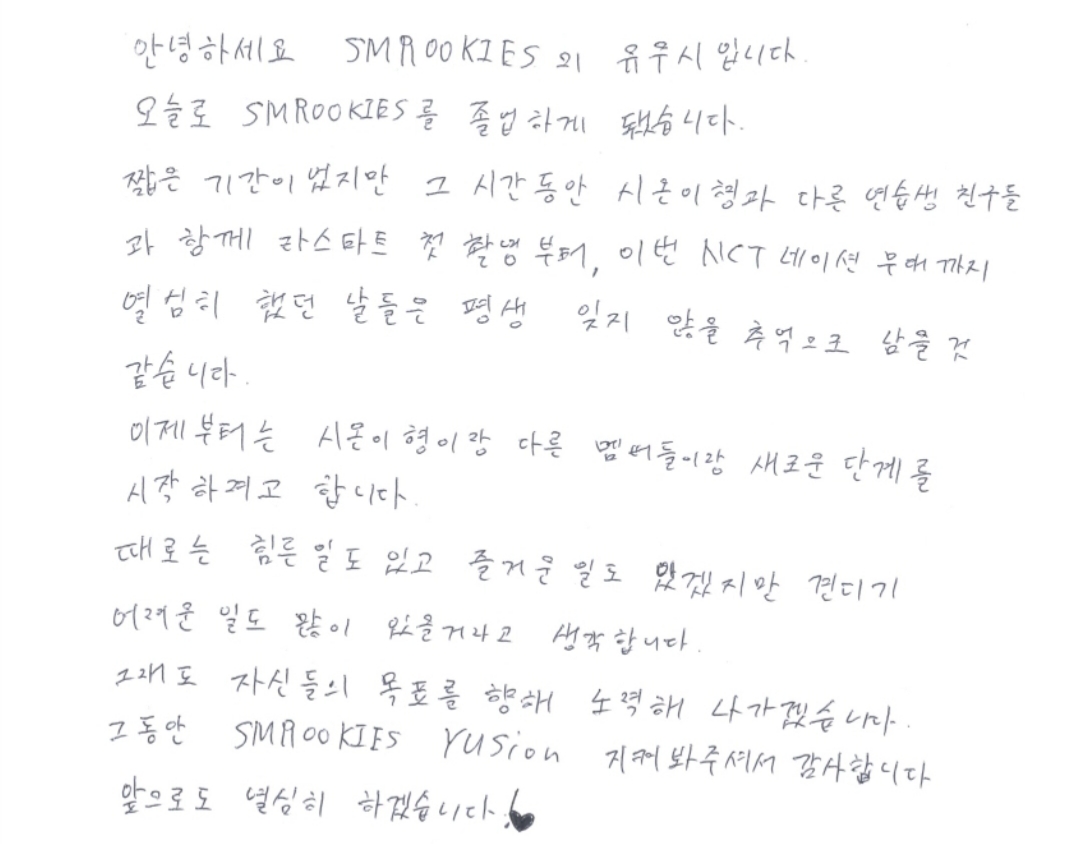 안녕하세요 SMROOKIES의 유우시입니다.
오늘로 SMROOKIES를 졸업하게 됐습니다.
짧은 기간이었지만 그 시간동안 시온이형과 다른 연습생 친구들
과 함께 라스타트 첫 촬영부터, 이번 NCT 네이션 무대까지
열심히 했던 날들은 평생 잊지 않을 추억으로 남을 것
같습니다.
이제부터는 시온이형이랑 다른 멤버들이랑 새로운 단계를
시작하려고 합니다.
때로는 힘든 일도 있고 즐거운 일도 있겠지만 견디기
어려운 일도 많이 있을거라고 생각합니다.
그래도 자신들의 목표를 향해 노력해 나가겠습니다.
그동안 SMROOKIES YUSion 지켜봐주셔서 감사합니다
앞으로도 열심히 하겠습니다!♥